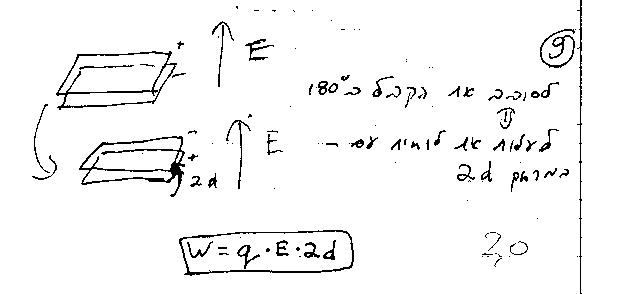 9
לסובב את הקבל ב 180°
⇓
לעלות את לוחית עם –
במרחק 2d
+
–
E
–
+
2d
E
W = q · E · 2d
2,0